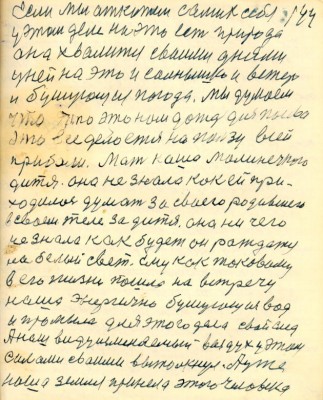 Если мы аткрытии самих себя 144
у этом деле на это ест природа
она хвалится своими днями
у ней на это и солнышко и ветер
и бушующия погода. Мы думаем
что это этом дожд для
Это все делается на ползу всей
природы. Мат нашо малинечкого
дитя. она не знала как ей при-
ходилос думат за своего родившего
в своем теле за дитя, она ни чего
не знала как будет он раждатца
на белый свет. ему как таковому
в его жизни пошла на встречу
наша энергично бушующия вод
и промыла для этого дела свой след
А наш видуунимаемый воздух у этом
силами своими вытолкнул. А уже
наша земля приняла этого человека